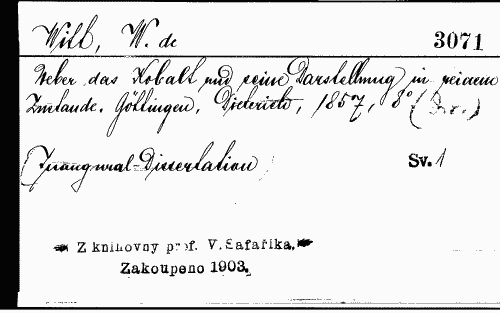 Witt, W. de 3071
Ueber das Kobalt und seine Darstellung in reinem
Zustande. Göttingen, Dieterich, 1857, 8°
(Inaugural-Dissertation) Sv. 1
Z knihovny prof. V. Šafaříka.
Zakoupeno 1903.